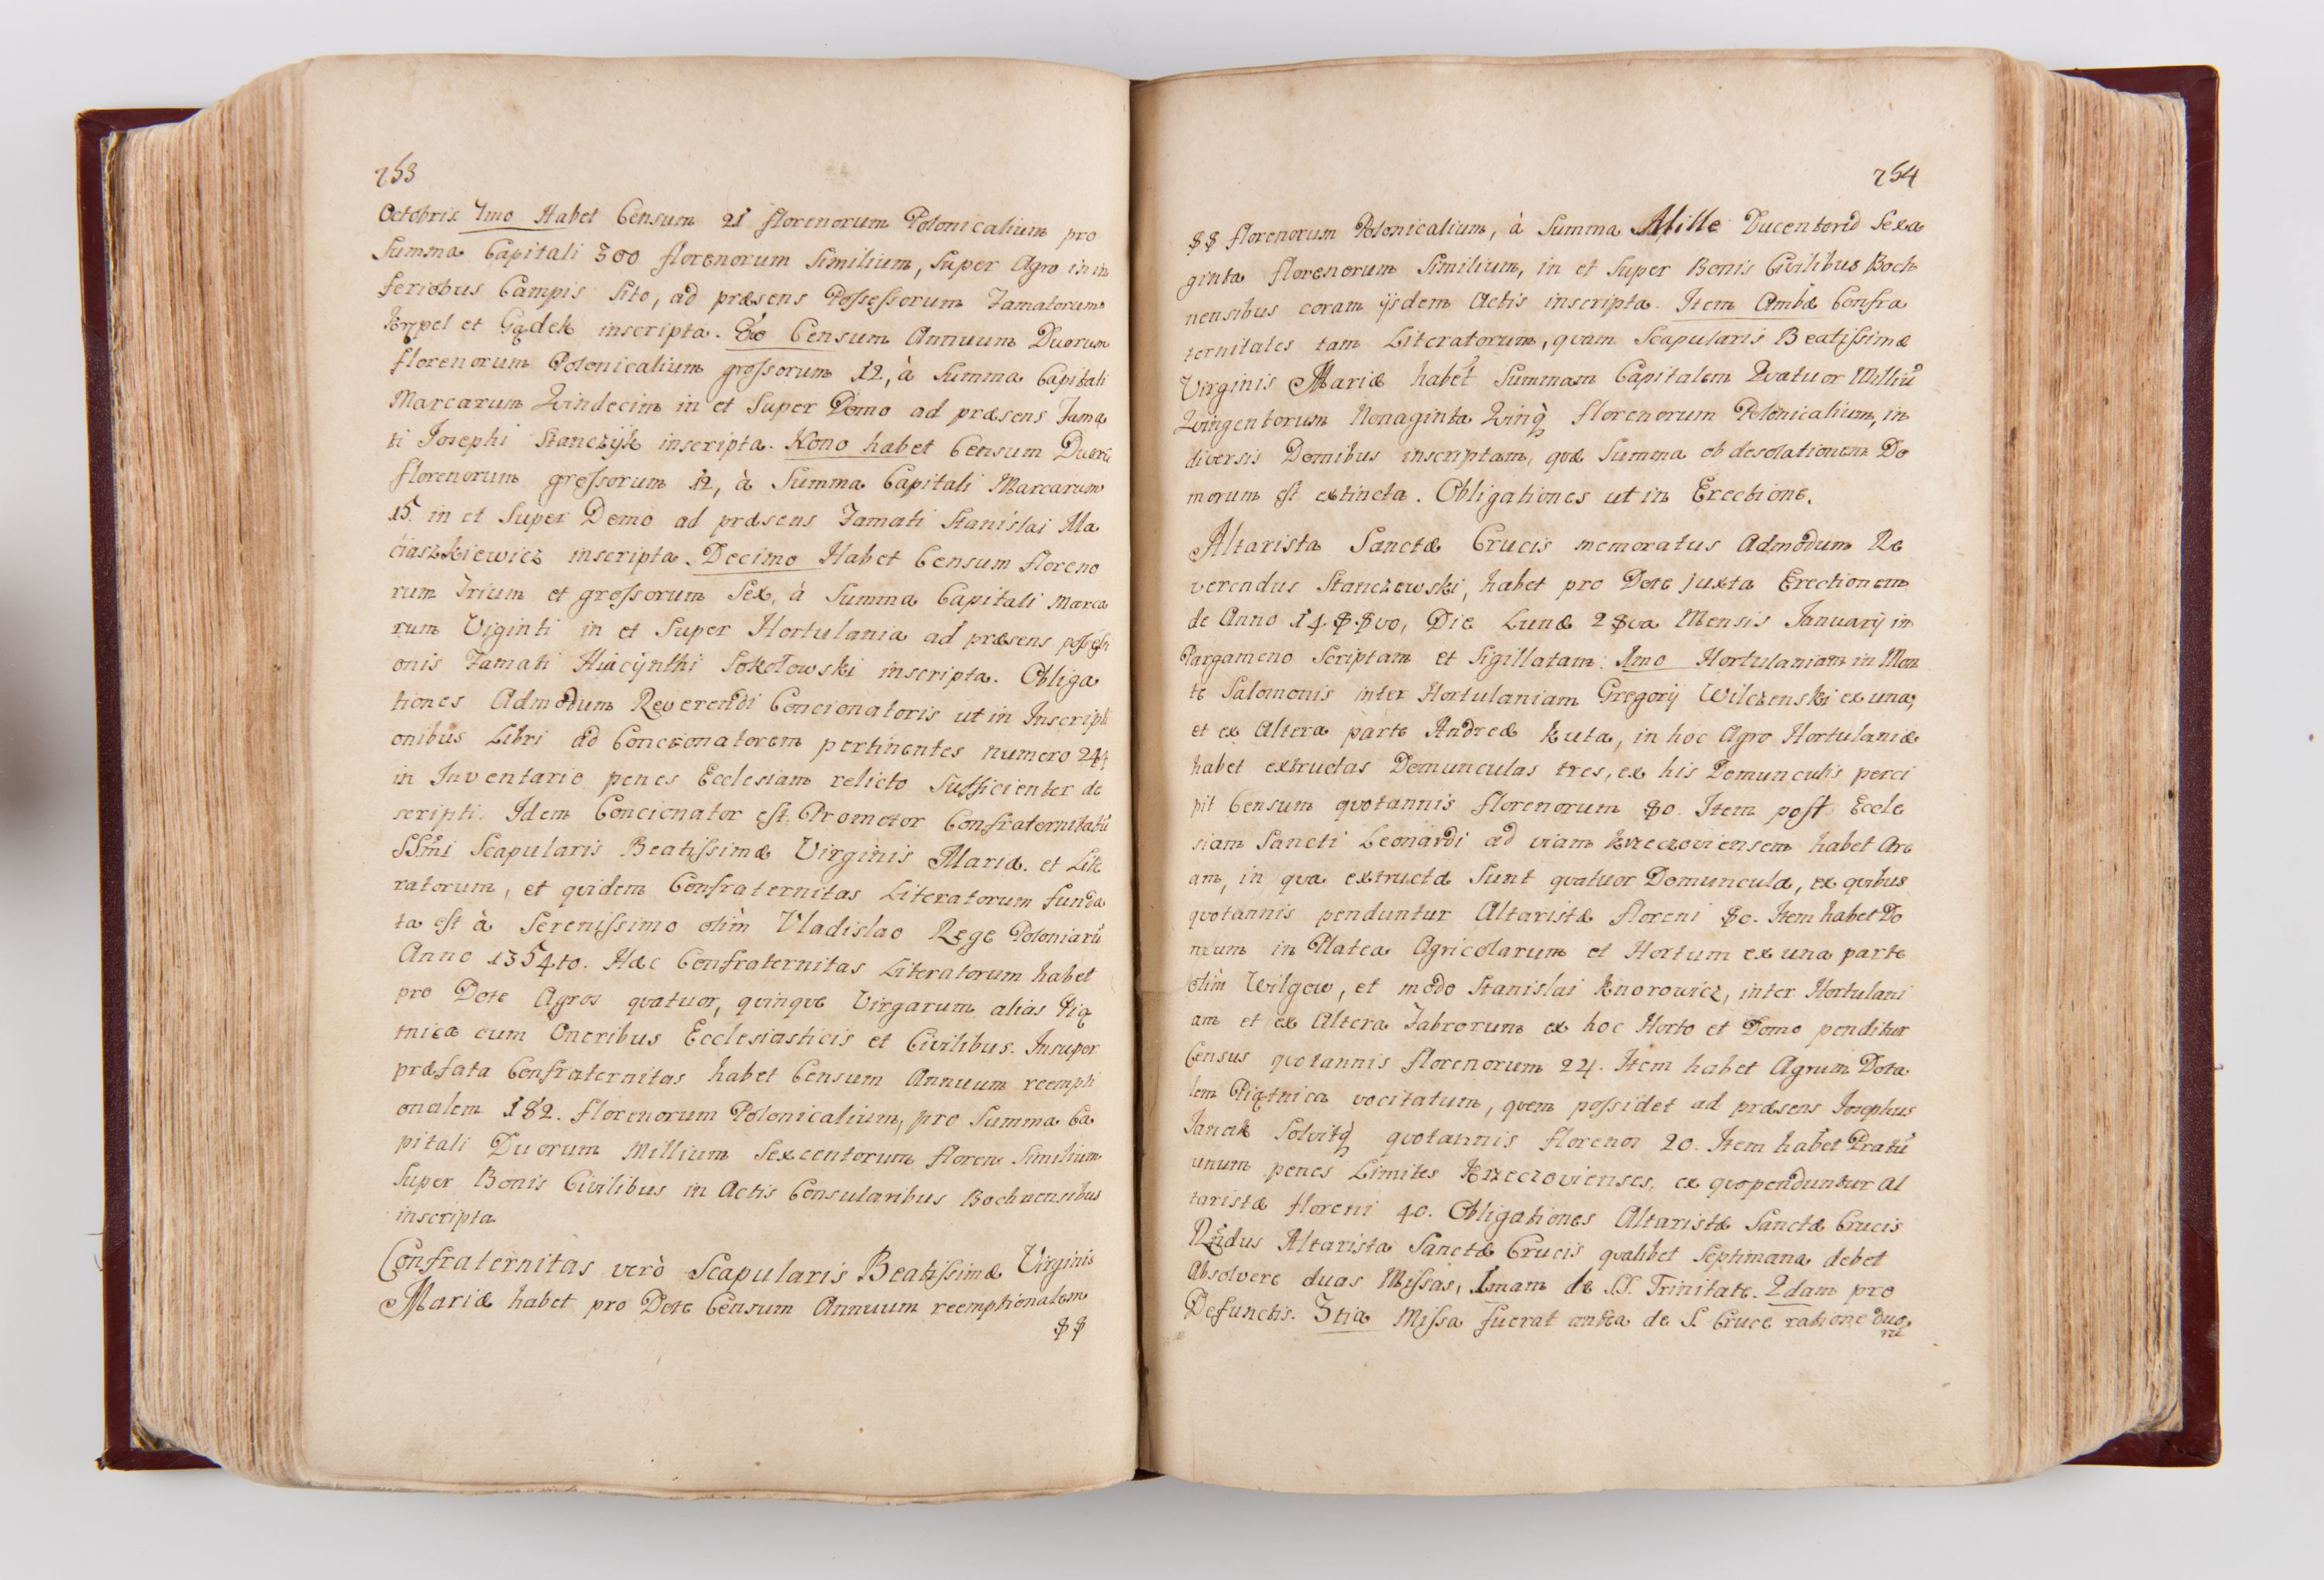 753
Octobris 7mo Habet Censum 21 florenorum Polonicalium pro
Summa Capitali 300 florenorum Similium, Super Agro in in
feriobus Campis Sito, ad præsens Possessorum Famatorum
Kęnpel et Gądek inscripta. 8vo Censum Annuum Duorum
florenorum Polonicalium grossorum 12, à Summa Capitali
Marcarum Quindecim in et Super Domo ad præsens Fama
ti Josephi Stanczÿk inscripta. Nono habet Censum Duorū
florenorum grossorum 12, à Summa Capitali Marcarum
15. in et Super Domo ad præsens Famati Stanislai Ma
ciaszkiewicz inscripta. Decimo Habet Censum floreno
rum Trium et grossorum Sex, à Summa Capitali Marca
rum Viginti in et Super Hortulania ad præsens possessi
onis Famati Hiacÿnthi Sokołowski inscripta. Obliga
tiones Admodum Reverendi Concionatoris ut in Inscripti
onibus Libri ad Concionatorem pertinentes numero 244
in Inventario penes Ecclesiam relicto Sufficienter de
scripti. Idem Concionator est Promotor Confraternitatū
SSmi Scapularis Beatissimæ Virginis Mariæ. et Lite
ratorum, et quidem Confraternitas Literatorum funda
ta est à Serenissimo olim Vladislao Rege Poloniarū
Anno 1354to. Hæc Confraternitas Literatorum habet
pro Dote Agros quatuor, quinque Virgarum alias Pią
tnicæ cum Oneribus Ecclesiasticis et Civilibus. Insuper
præfata Confraternitas habet Censum Annuum reempti
onalem 182. florenorum Polonicalium, pro Summa Ca
pitali Duorum Millium Sexcentorum floren Similium
Super Bonis Civilibus in Actis Consularibus Bochnensibus
inscripta
Confraternitas verò Scapularis Beatissimæ Virginis
Mariæ habet pro Dote Censum Annuum reemptionalem
88
754
88 florenorum Polonicalium, à Summa Mille Ducentorū Sexa
ginta florenorum Similium, in et Super Bonis Civilibus Boch
nensibus coram ijsdem Actis inscripta. Item Ambæ Confra
ternitates tam Literatorum, quam Scapularis Beatissimæ
Virginis Mariæ habet Summam Capitalem Quatuor Milliū
Quingentorum Nonaginta Quinq́ florenorum Polonicalium, in
diversis Domibus inscriptam, quæ Summa ob desolationem Do
morum est extincta. Obligationes ut in Erectione.
Altarista Sanctæ Crucis memoratus Admodum Re
verendus Stanczewski, habet pro Dote juxta Erectionem
de Anno 1488vo, Die Lunæ 28va Mensis Januarij in
Pargameno Scriptam et Sigillatam: 1mo Hortulaniam in Mon
te Salomonis inter Hortulaniam Gregorij Wilczenski ex una,
et ex Altera parte Andreæ Kuta, in hoc Agro Hortulaniæ
habet extructas Domunculas tres, ex his Domunculis perci
pit Censum quotannis florenorum 80. Item post Eccle
siam Sancti Leonardi ad viam Krzeczoviensem habet Are
am, in qua extructæ Sunt quatuor Domunculæ, ex quibus
quotannis penduntur Altaristæ floreni 80. Item habet Do
mum in Platea Agricolarum et Hortum ex una parte
olim Wilgow, et modo Stanislai Knorowicz, inter Hortulani
am et ex Altera Fabrorum ex hoc Horto et Domo penditur
Census quotannis florenorum 24. Item habet Agrum Dota
lem Piątnica vocitatum, quem possidet ad præsens Josephus
Janak Solvitq́ quotannis florenos 20. Item habet Pratū
unum penes Limites Krzeczovienses, ex quo penduntur Al
taristæ floreni 40. Obligationes Altaristæ Sanctæ Crucis
Rndus Altarista Sanctæ Crucis qualibet Septimana debet
Absolvere duas Missas, 1mam de SS. Trinitate. 2dam pro
Defunctis. 3tia Missa fuerat antea de S. Cruce ratione duo
rū